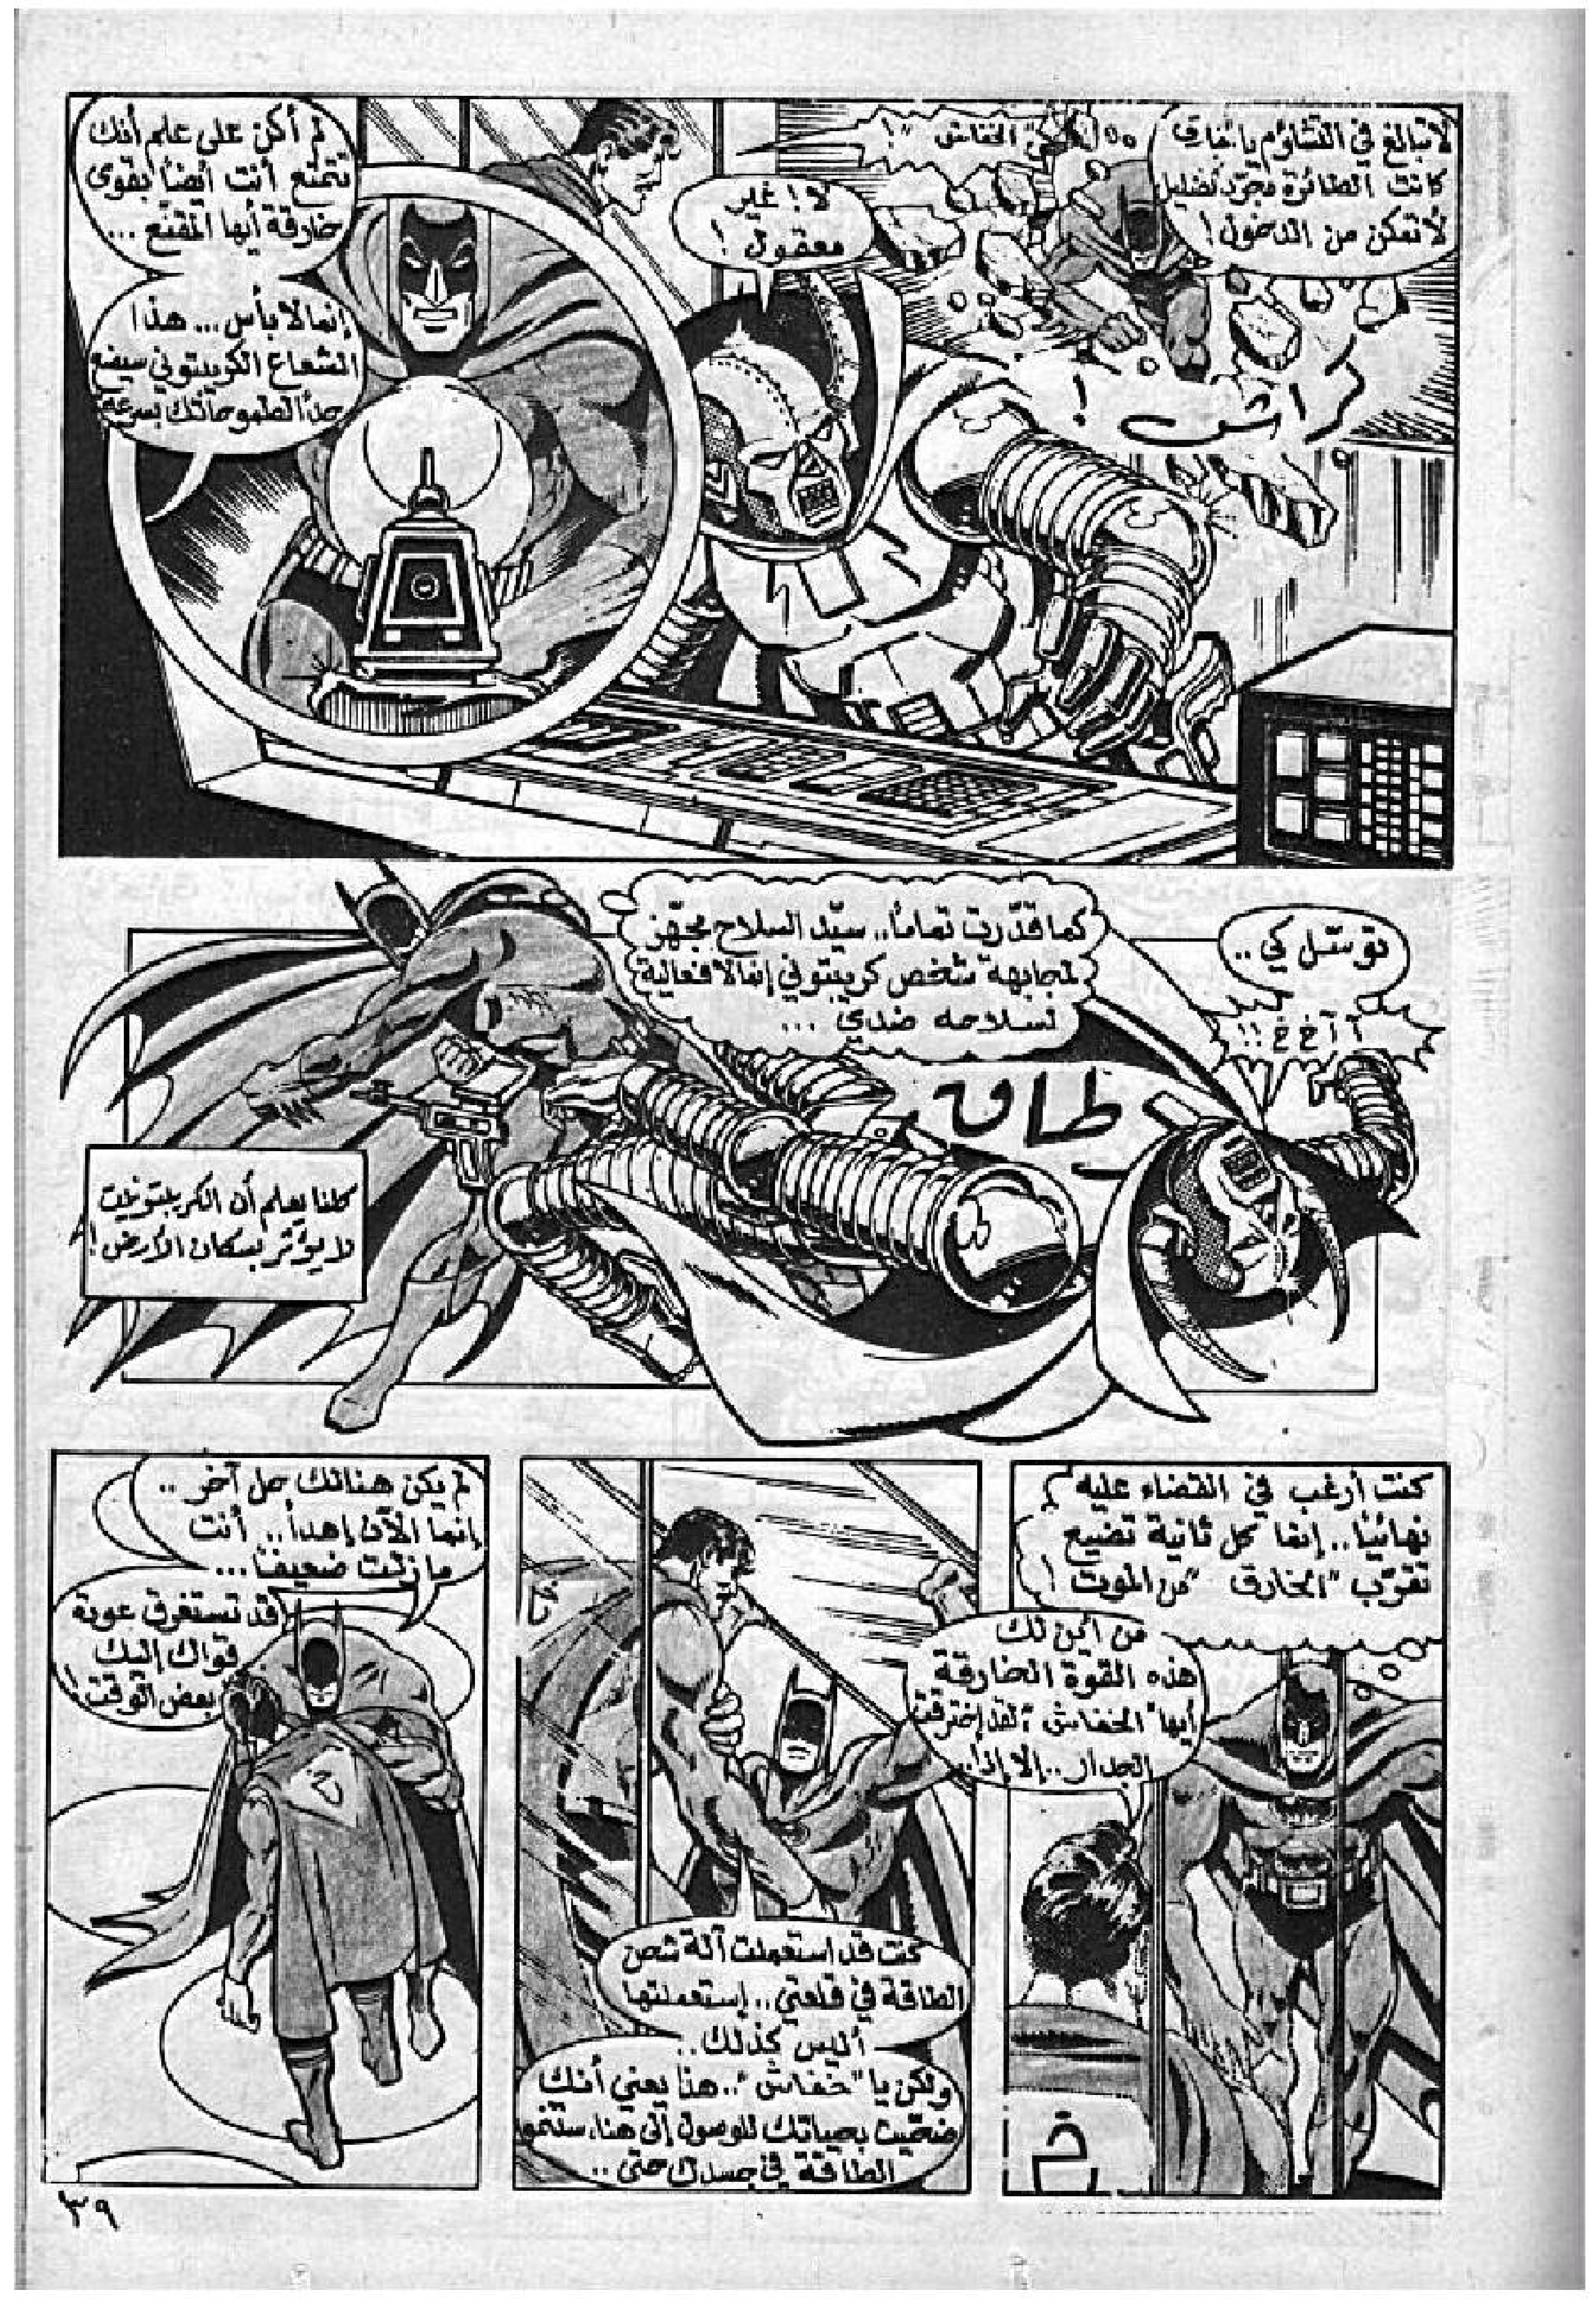 لا تبالغ في التشاؤم يا
كانت الطائرة مجرّد تضليل
لأتمكن من الدخول!
الخفاش"!
كراش!
لا! غير
معقول!
لم أكن على علم أنك
تتمتع أنت أيضاً بقوى
خارقة أيها المقنع...
إنما لا بأس... هذا
الشعاع الكريبتوني سيضع
حداً لطموحاتك بسرعة
كما قدّرت تماماً.. سيّد السلاح مجهّز
لمجابهة شخص كريبتوني إنما لا فعالية
لسلاحه ضدي...
توسّل كي..
آ آ خ خ !!
طاق
كلنا يعلم أن الكريبتونيت
لا يؤثر بسكان الأرض!
كنت أرغب في القضاء عليه
نهائياً.. إنما كل ثانية تضيع
تقرّب "الخارق" من الموت!
من أين لك
هذه القوة الخارقة
أيها "الخفاش"؟ لقد إخترقت
الجدار.. إلا إذا..
خ
كنت قد استعملت آلة شحن
الطاقة في قلعتي.. إستعملتها
أليس كذلك..
ولكن يا "خفاش".. هذا يعني أنك
ضحّيت بحياتك للوصول إلى هنا، ستنمو
الطاقة في جسدك حتى..
لم يكن هنالك حل آخر..
إنما الآن إهدأ.. أنت
ما زلت ضعيفاً...
قد تستغرق عودة
قواك إليك
بعض الوقت!
٣٩